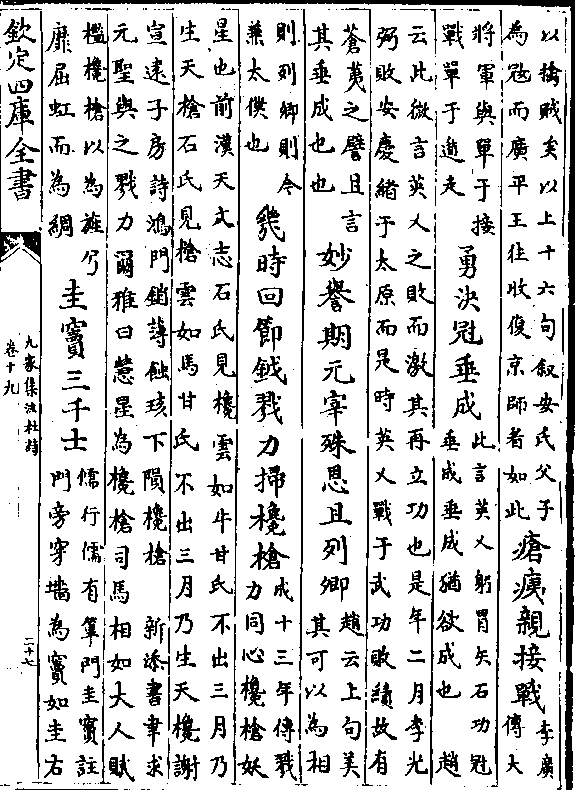 以擒賊矣以上十六句叙安氏父子
為寇而廣平王往收復京師者如此
瘡痍親接戰
李廣
傳大
將軍與單于接
戰單于遁走
勇決冠垂成
此言英乂躬冒矢石功冠
垂成垂成猶欲成也 趙
云此微言英乂之敗而激其再立功也是年二月李光
弼敗安慶緒于太原而是時英乂戰于武功敗績故有
蒼夷之譬且言
其垂成也也
妙譽期元宰殊恩且列卿
趙云上句美
其可以為相
則列卿則今
兼太僕也
幾時回節鉞戮力掃欃槍
成十三年傳戮
力同心欃槍妖
星也前漢天文志石氏見欃雲如牛甘氏不出三月乃
生天槍石氏見槍雲如馬甘氏不出三月乃生天欃謝
宣逺子房詩鴻門銷薄蝕垓下隕欃槍 新添書聿求
元聖與之戮力爾雅曰慧星為欃槍司馬相如大人賦
檻欃槍以為旌兮
靡屈虹而為綢
圭竇三千士
儒行儒有篳門圭竇註
門旁穿墻為竇如圭右
欽定四庫全書
九家集注杜詩
卷十九
二十七